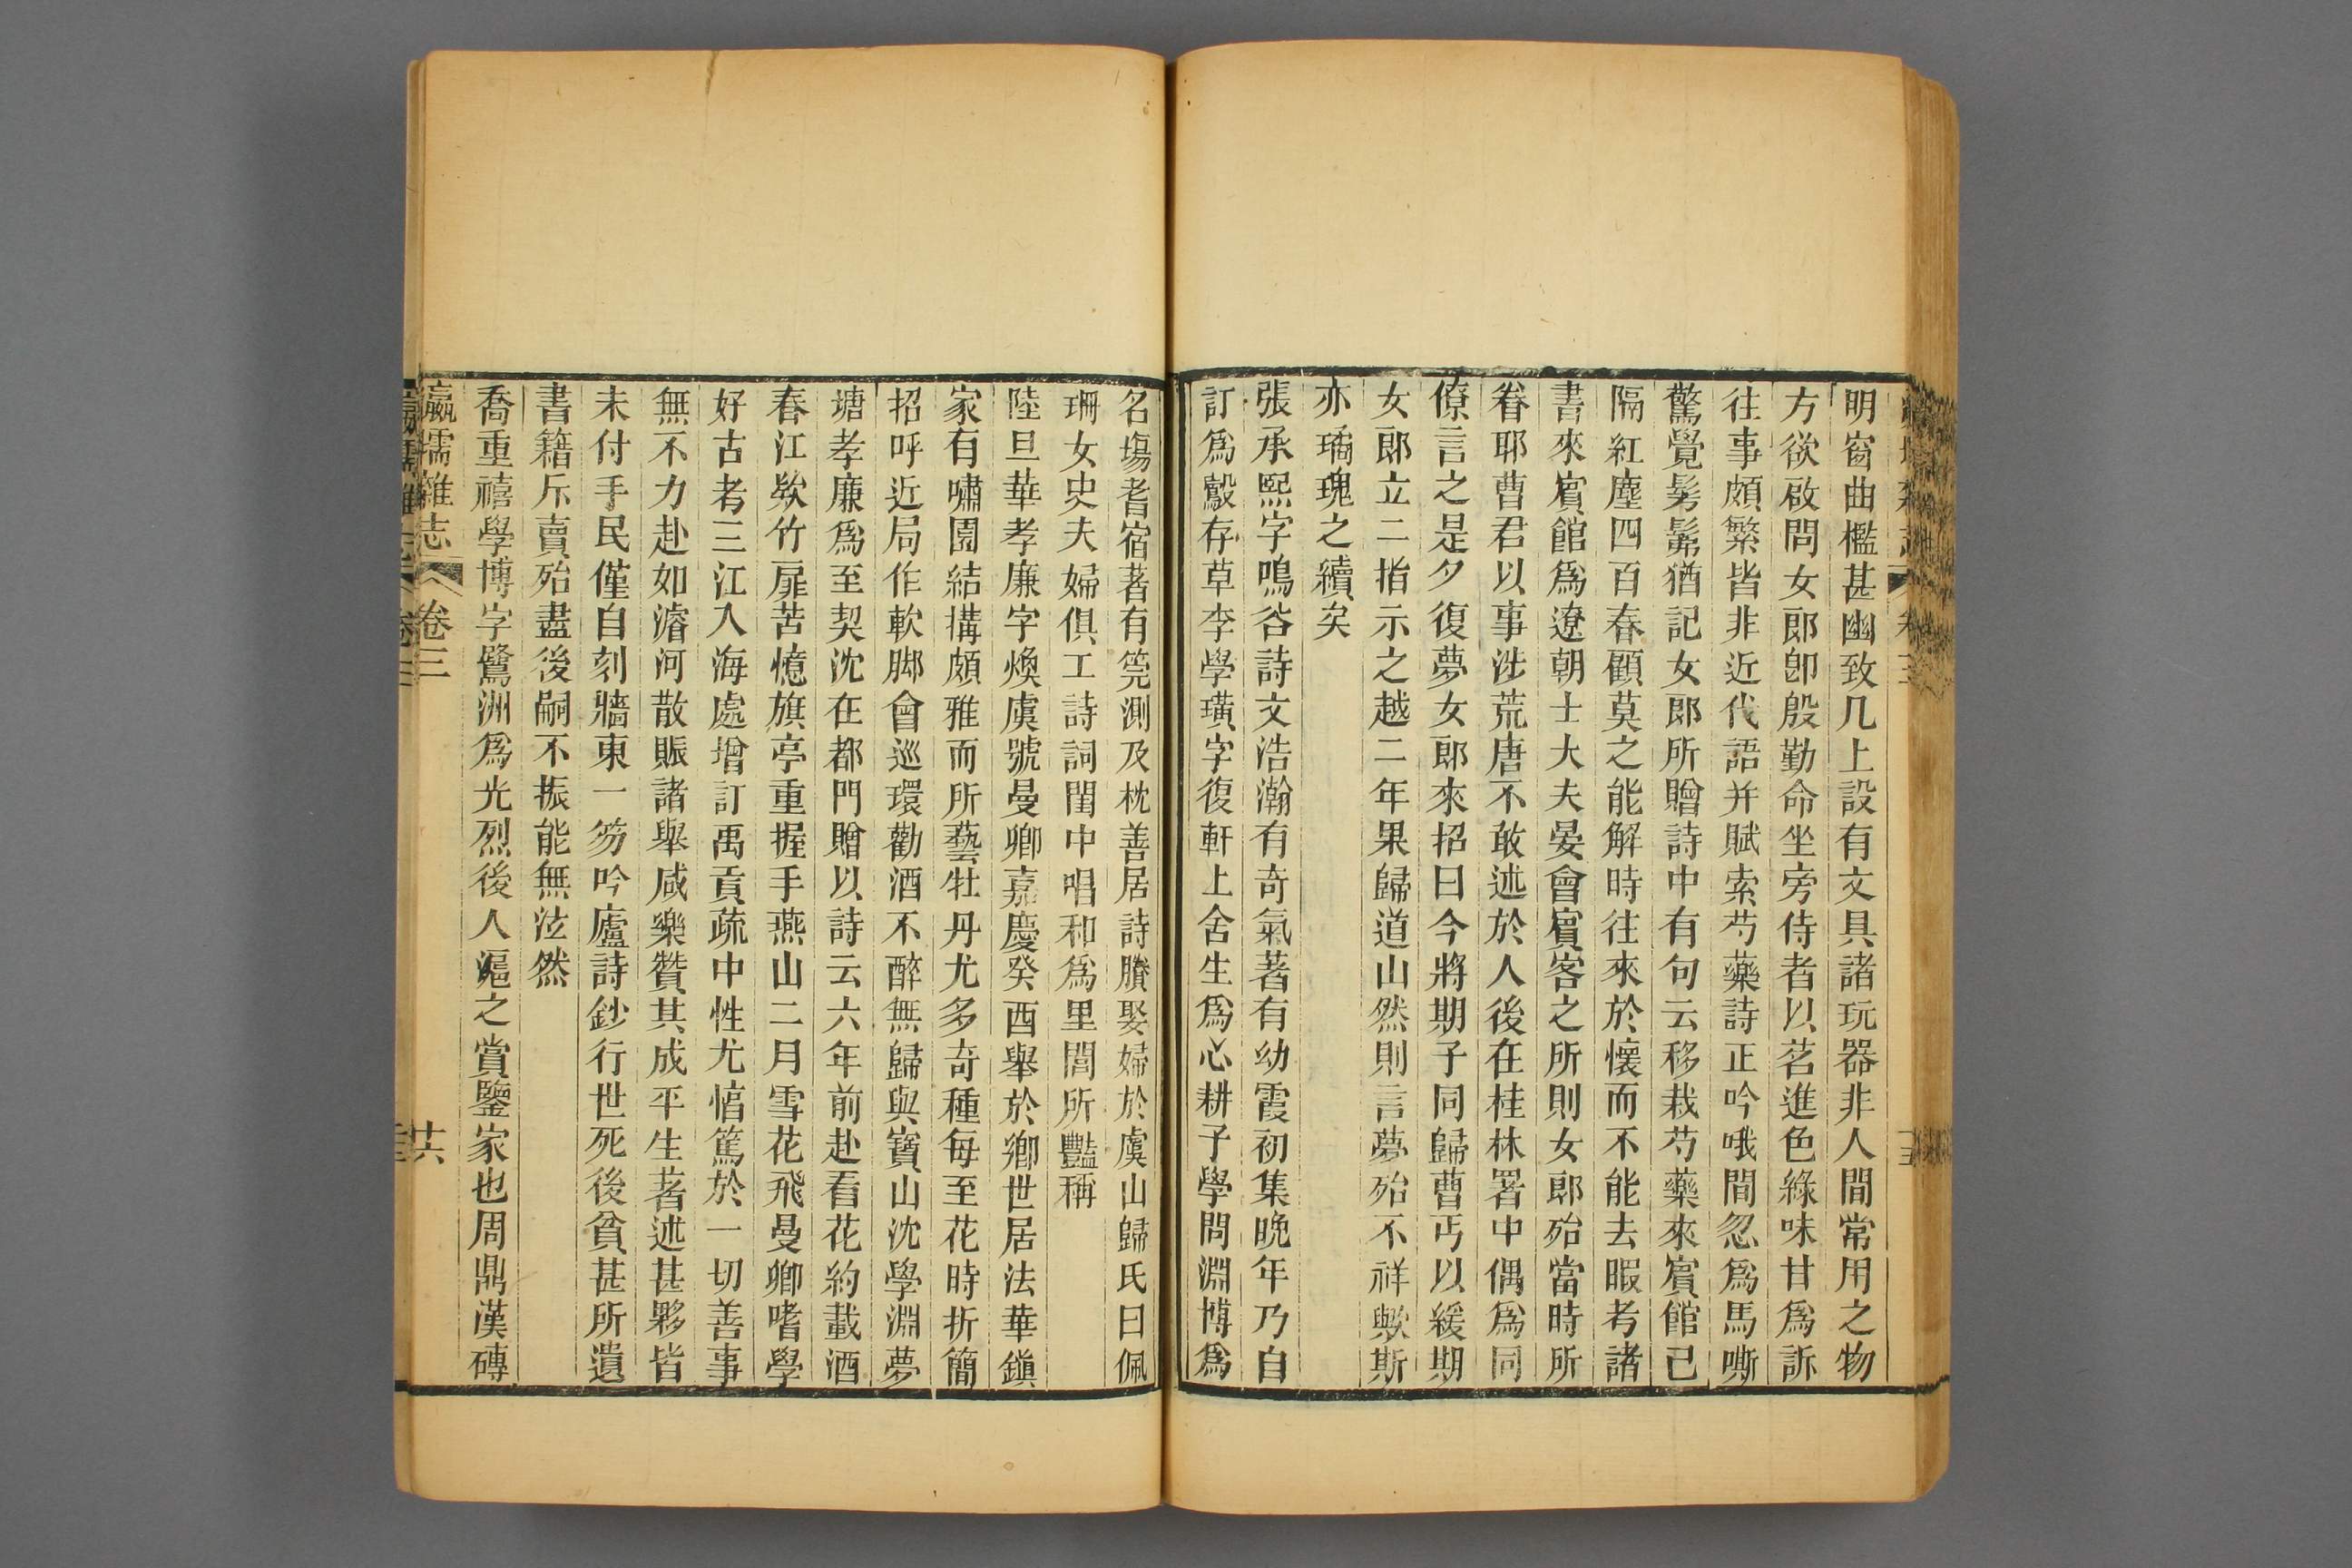 明窗曲檻甚幽致几上設有文具諸玩器非人間常用之物
方欲啟問女郎卽殷勤命坐旁侍者以茗進色綠味甘爲訴
往事頗繁皆非近代語并賦索芍藥詩正吟哦間忽爲馬嘶
驚覺髣髴猶記女郎所贈詩中有句云移栽芍藥來賓館已
隔紅塵四百春顧莫之能解時往來於懷而不能去暇考諸
書來賓館爲遼朝士大夫晏會賓客之所則女郎殆當時所
眷耶曹君以事涉荒唐不敢述於人後在桂林署中偶爲同
僚言之是夕復夢女郎來招曰今將期子同歸曹丐以緩期
女郎立二指示之越二年果歸道山然則言夢殆不祥歟斯
亦璚瑰之續矣
張承熙字鳴谷詩文浩瀚有奇氣著有幼霞初集晚年乃自
訂爲鷇存草李學璜字復軒上舍生爲心耕子學問淵博爲
名塲耆宿著有筦測及枕善居詩賸娶婦於虞山歸氏曰佩
珊女史夫婦俱工詩詞閨中唱和爲里閭所豔稱
陸旦華孝廉字煥虞號曼卿嘉慶癸酉舉於鄉世居法華鎭
家有嘯園結搆頗雅而所藝牡丹尤多奇種每至花時折簡
招呼近局作軟脚會巡環勸酒不醉無歸與寶山沈學淵夢
塘孝廉爲至契沈在都門贈以詩云六年前赴看花約載酒
春江欵竹扉苦憶旗亭重握手燕山二月雪花飛曼卿嗜學
好古考三江入海處增訂禹貢疏中性尤悋篤於一切善事
無不力赴如濬河散賑諸舉咸樂贊其成平生著述甚夥皆
未付手民僅自刻牆東一笏吟廬詩鈔行世死後貧甚所遺
書籍斥賣殆盡後嗣不振能無泫然
喬重禧學博字鷺洲爲光烈後人滬之賞鑒家也周鼎漢磚
瀛壖雜志 卷三 廿六